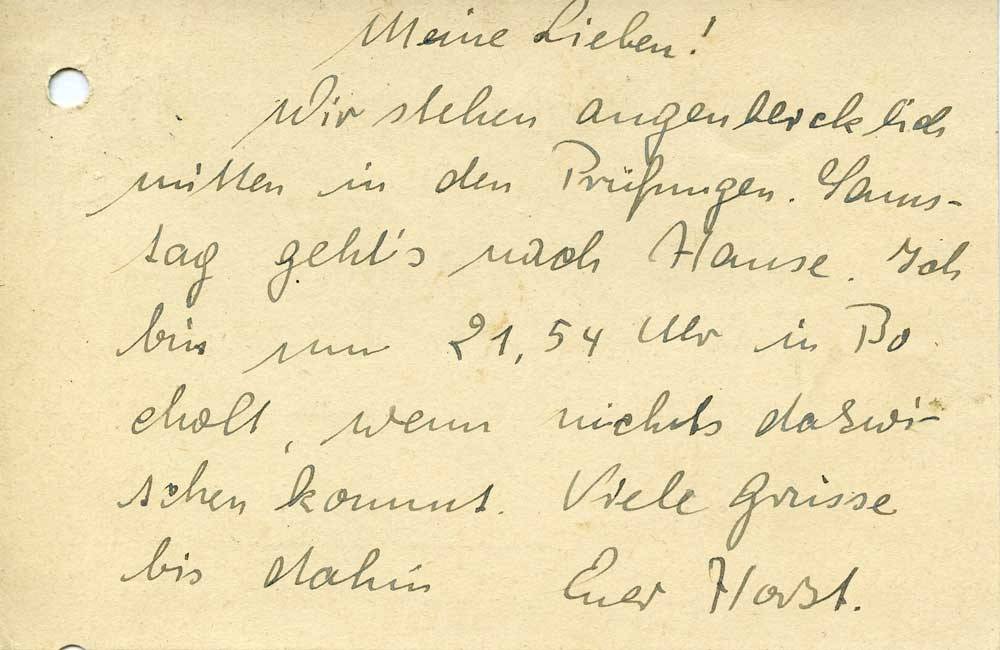 Meine Lieben!
Wir stehen augenblicklich
mitten in den Prüfungen. Sams-
tag geht's nach Hause. Ich
bin um 21,54 Uhr in Bo
cholt, wenn nichts dazwi-
schen kommt. Viele Grüsse
bis dahin Euer Horst.